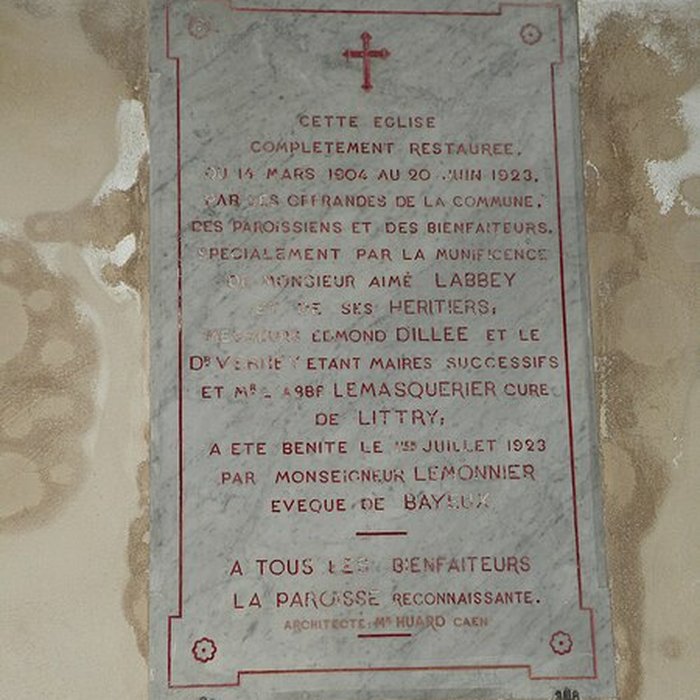 CETTE EGLISE
COMPLETEMENT RESTAUREE,
DU 14 MARS 1904 AU 20 JUIN 1923,
PAR LES OFFRANDES DE LA COMMUNE,
DES PAROISSIENS ET DES BIENFAITEURS,
SPECIALEMENT PAR LA MUNIFICENCE
DE MONSIEUR AIMÉ LABBEY
ET DE SES HERITIERS;
MESSIEURS EDMOND DILLEE ET LE
DR VERNEY ETANT MAIRES SUCCESSIFS
ET MR L'ABBE LEMASQUERIER CURE
DE LITTRY;
A ETE BENITE LE 1ER JUILLET 1923
PAR MONSEIGNEUR LEMONNIER
EVEQUE DE BAYEUX
A TOUS LES BIENFAITEURS
LA PAROISSE RECONNAISSANTE.
ARCHITECTE: MR HUARD CAEN